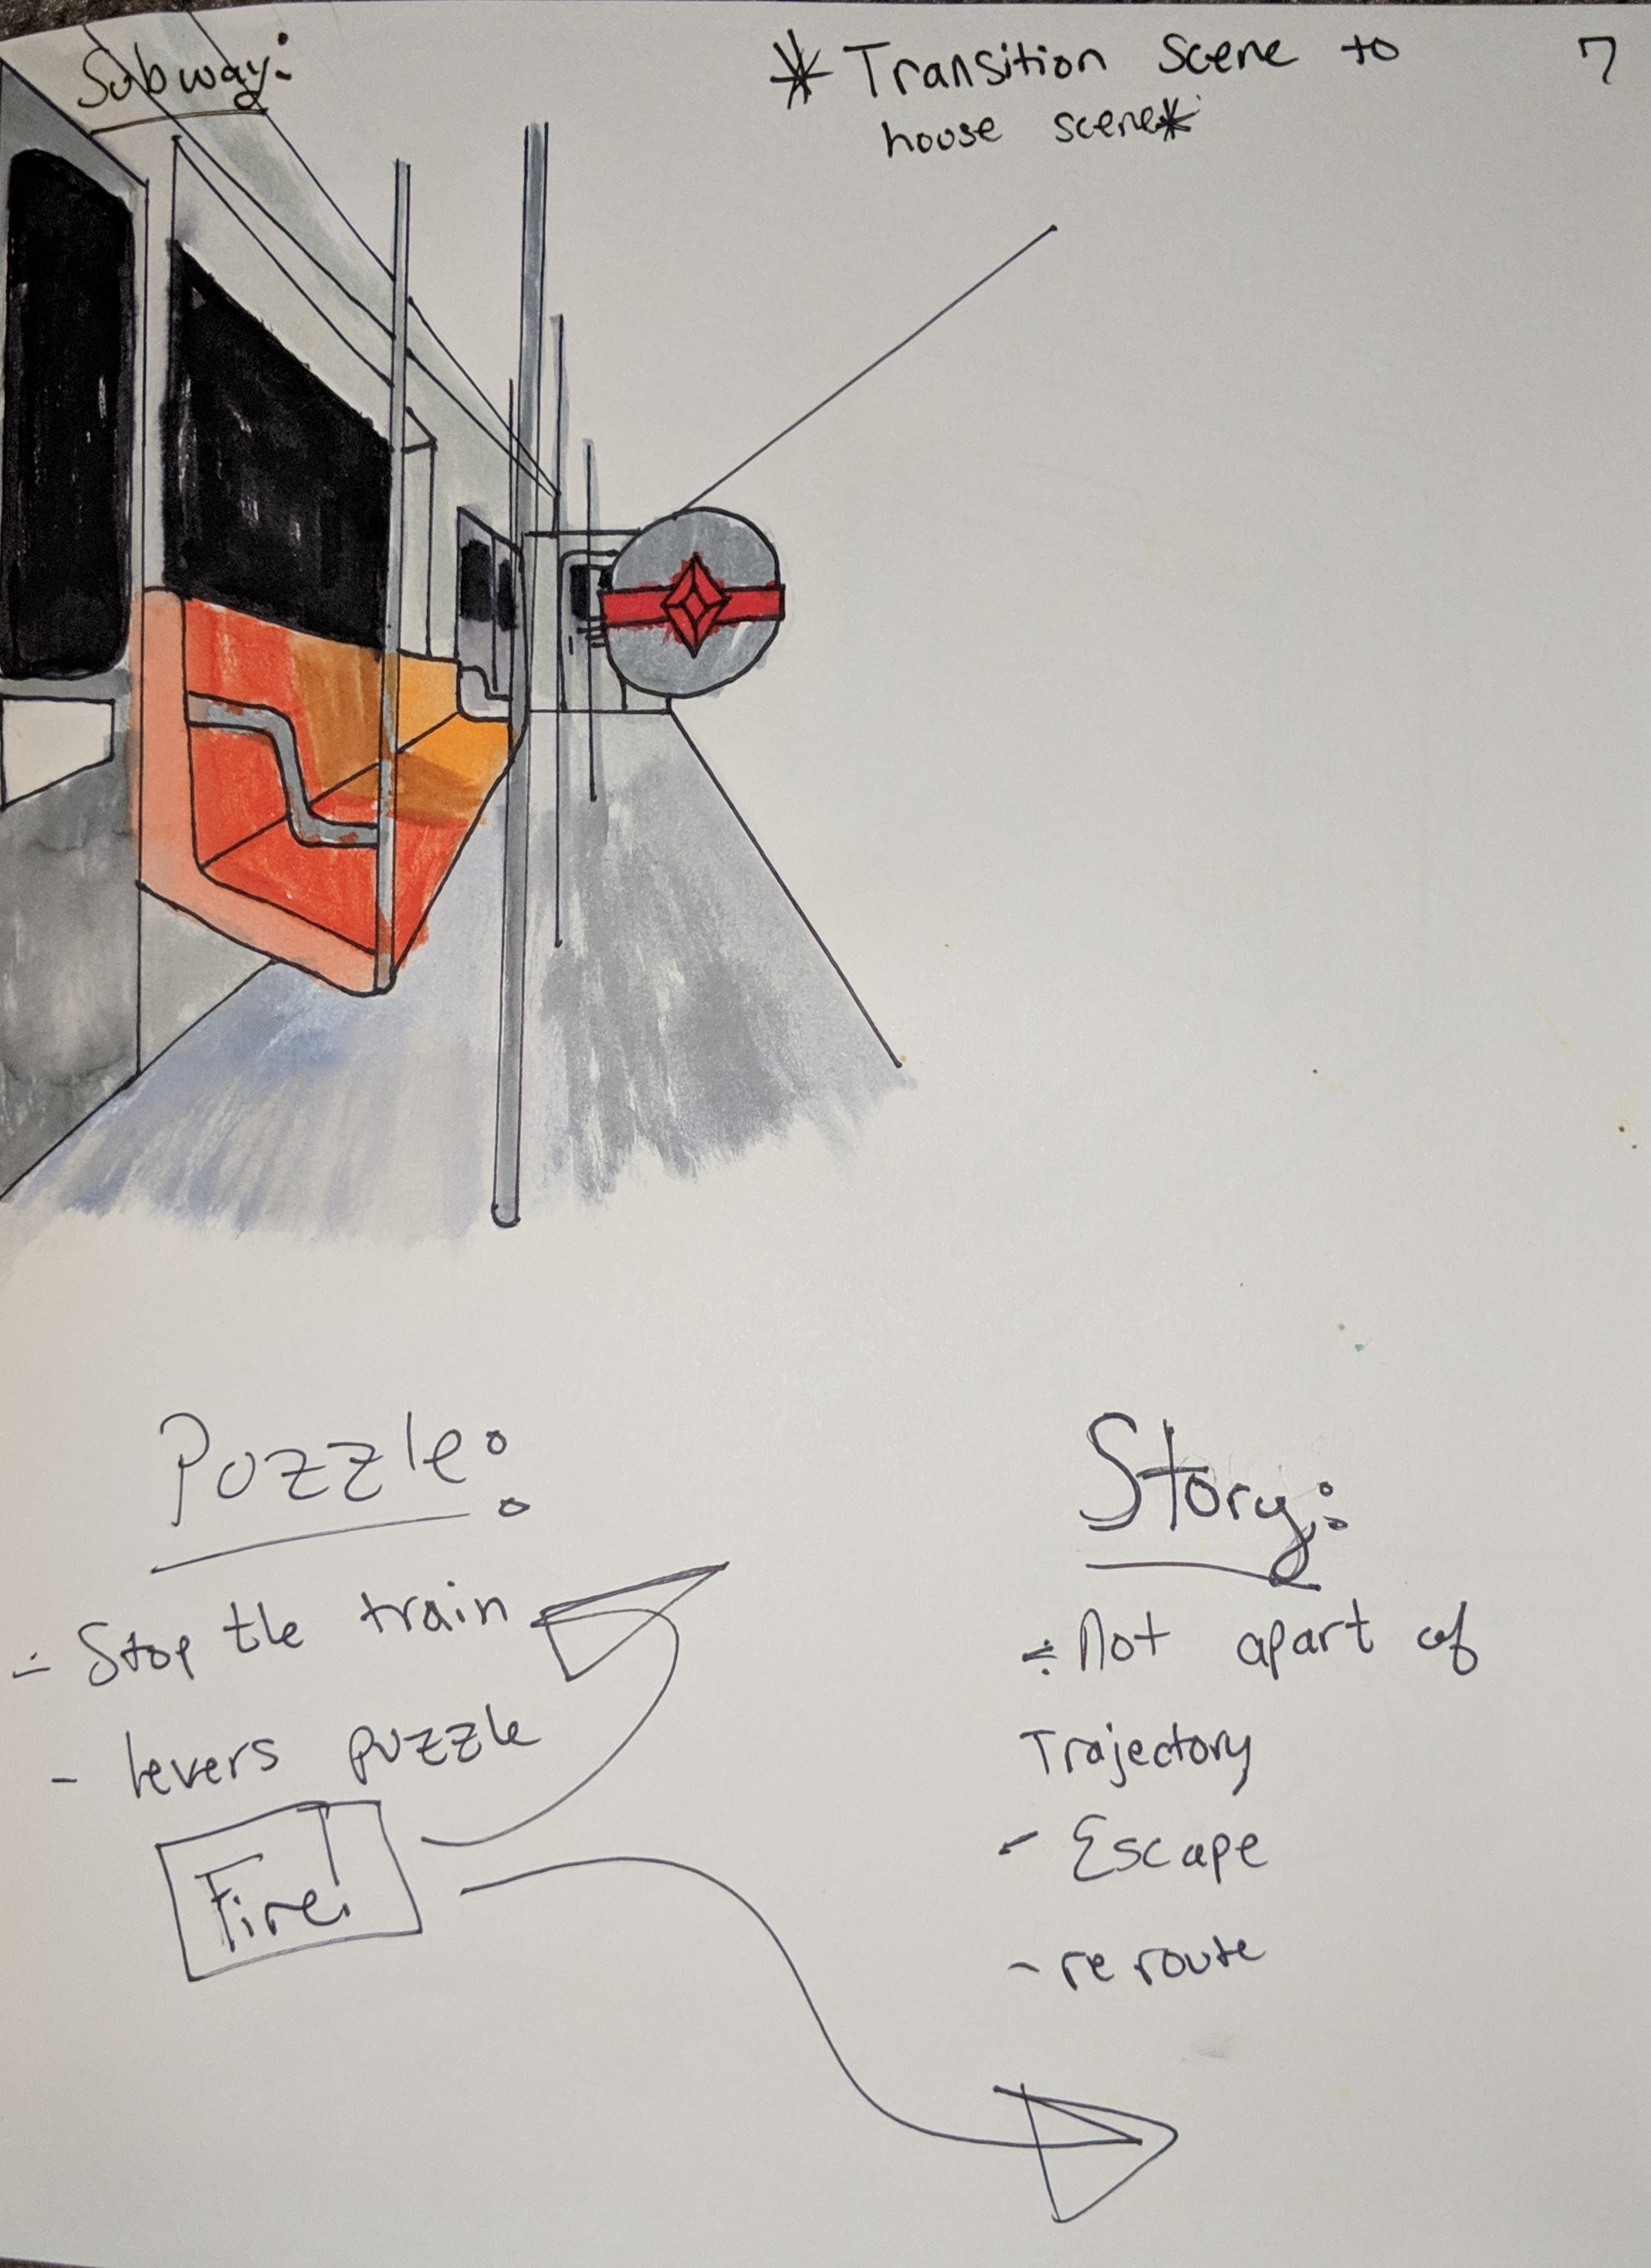 Subway:
* Transition Scene to
house scene*
7
Puzzle:
- Stop the train
- levers puzzle
Fire!
Story:
- Not apart of
Trajectory
- Escape
- reroute